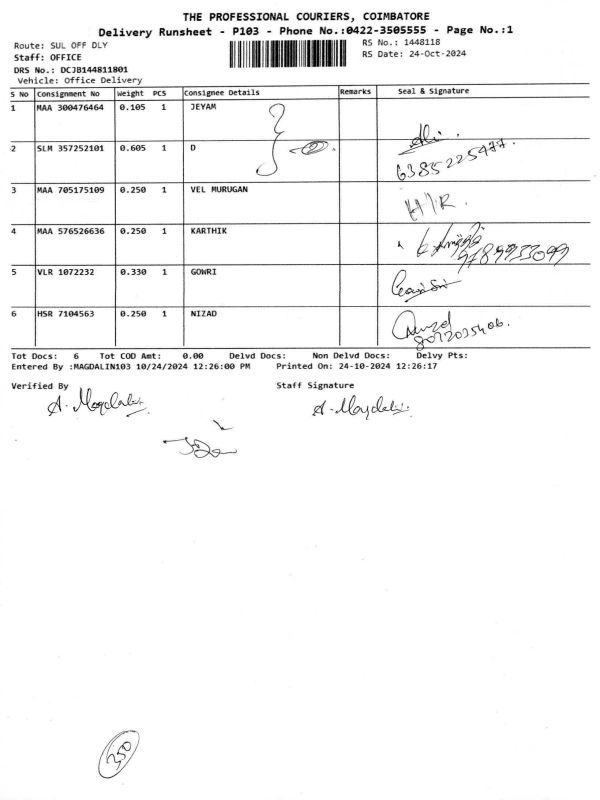 THE PROFESSIONAL COURIERS, COIMBATORE
Delivery Runsheet - P103 - Phone No.:0422-3505555 - Page No.:1
Route: SUL OFF DLY
RS No.: 1448118
Staff: OFFICE
RS Date: 24-Oct-2024
DRS No.: DCJB144811801
Vehicle: Office Delivery
S No Consignment No Weight PCS Consignee Details Remarks Seal & Signature
1 MAA 300476464 0.105 1 JEYAM
2 SLM 357252101 0.605 1 D
6385225477.
3 MAA 705175109 0.250 1 VEL MURUGAN H/R.
4 MAA 576526636 0.250 1 KARTHIK
9789933099
5 VLR 1072232 0.330 1 GOWRI
6 HSR 7104563 0.250 1 NIZAD
8072035406.
Tot Docs: 6 Tot COD Amt: 0.00 Delvd Docs: Non Delvd Docs: Delvy Pts:
Entered By :MAGDALIN103 10/24/2024 12:26:00 PM Printed On: 24-10-2024 12:26:17
Verified By Staff Signature
A. Magdalin A. Magdalin
350